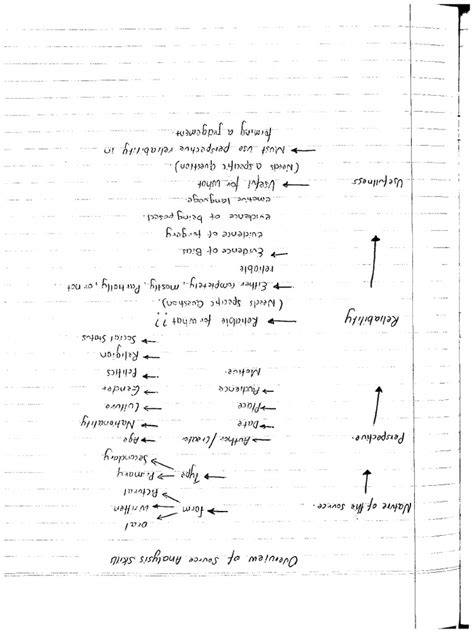 Overview of Source Analysis Skills
Nature of the source. → form → Oral
→ written
→ Pictural
→ Type → Primary
→ Secondary
Perspective. → Author/Creator → Age
→ Date → Nationality
→ Place → Culture
→ Audience → Gender
Motive. → Politics
→ Religion
→ Social Status
Reliability → Reliable for what??
(Needs Specific Question).
→ Either completely, mostly, Partially, or not
reliable
→ Evidence of Bias
evidence of forgery
evidence of being posed.
emotive language
Usefullness → Useful for what
(Needs a specific question).
→ Must use perspective reliability in
forming a judgement.